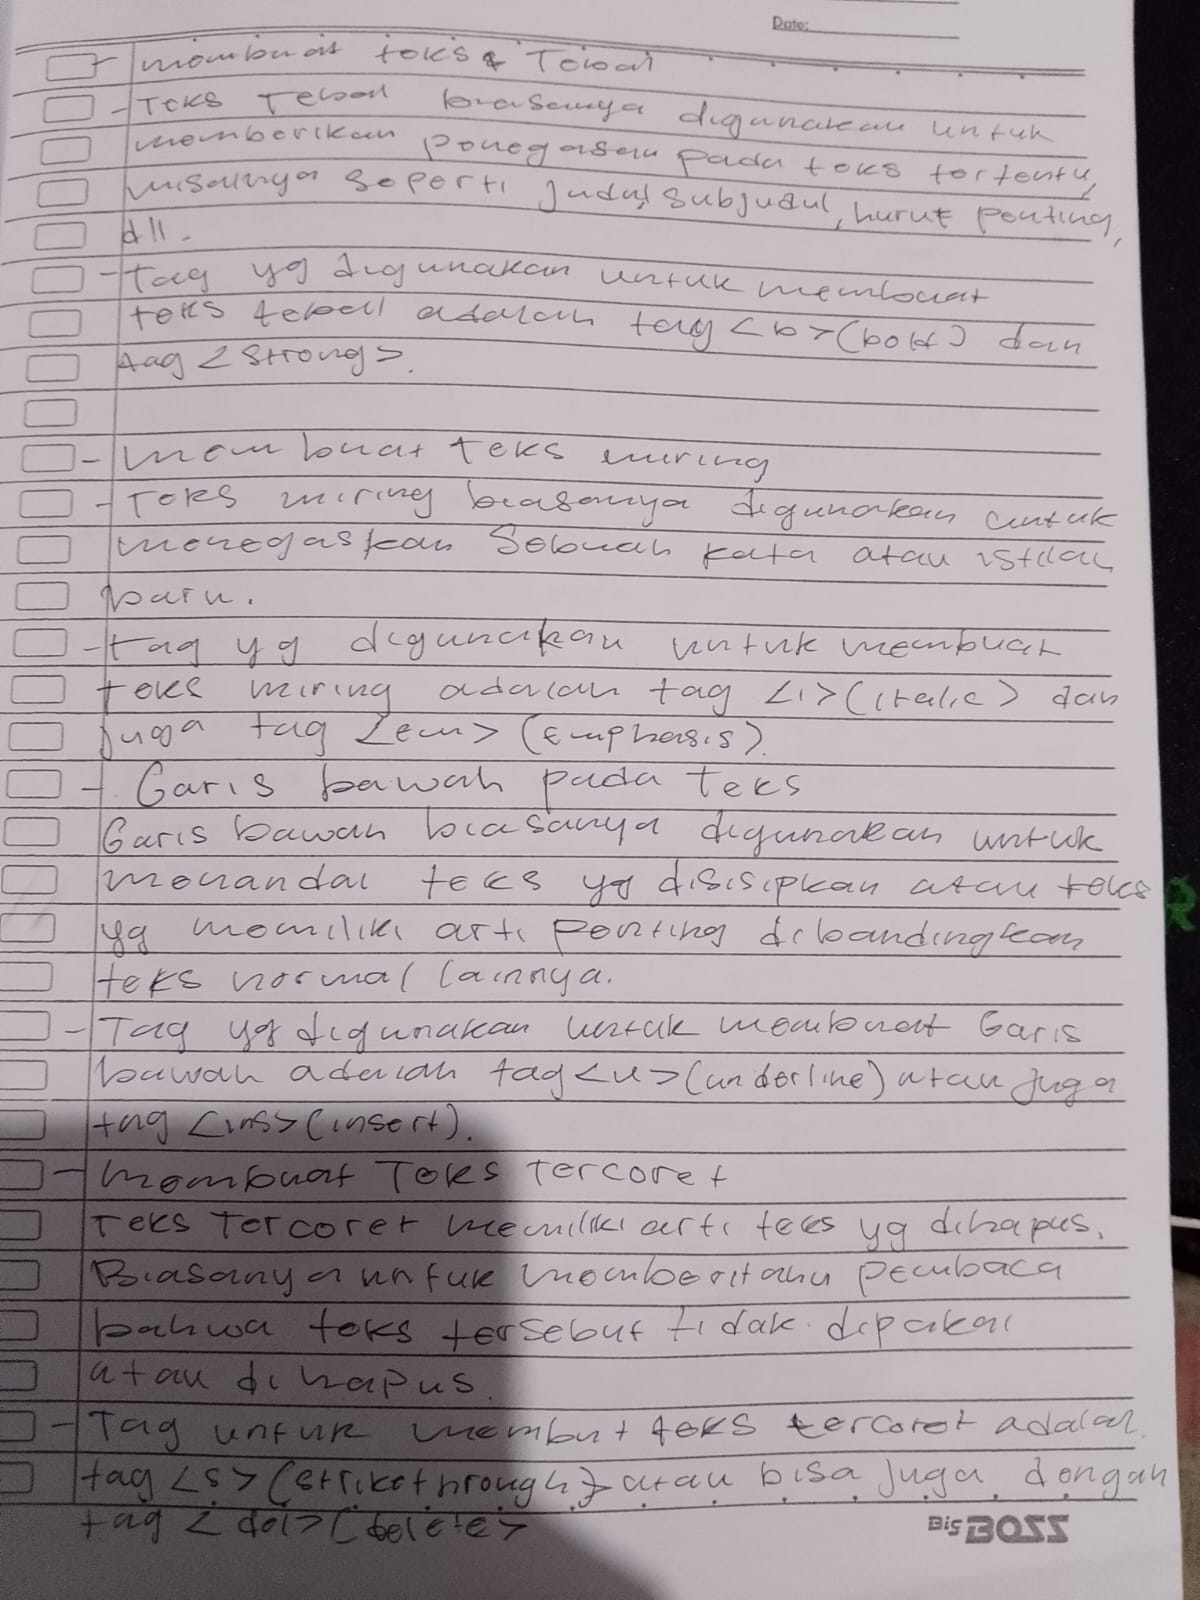 Date:
- membuat teks Tebal
- Teks Tebal biasanya digunakan untuk
memberikan penegasan pada teks tertentu,
misalnya seperti judul, subjudul, huruf penting,
dll.
- tag yg digunakan untuk membuat
teks tebal adalah tag <b> (bold) dan
tag <strong>.
- membuat teks miring
- Teks miring biasanya digunakan untuk
menegaskan Sebuah kata atau istilah
baru.
- tag yg digunakan untuk membuat
teks miring adalah tag <i> (italic) dan
juga tag <em> (Emphasis).
- Garis bawah pada teks
Garis bawah biasanya digunakan untuk
menandai teks yg disisipkan atau teks
yg memiliki arti penting dibandingkan
teks normal lainnya.
- Tag yg digunakan untuk membuat Garis
bawah adalah tag <u> (underline) atau juga
tag <ins> (insert).
- Membuat Teks Tercoret
Teks Tercoret memiliki arti teks yg dihapus.
Biasanya untuk memberitahu pembaca
bahwa teks tersebut tidak dipakai
atau dihapus.
- Tag untuk membut teks tercoret adalah
tag <s> (strikethrough) atau bisa juga dengan
tag <del> (delete>
Big BOSS